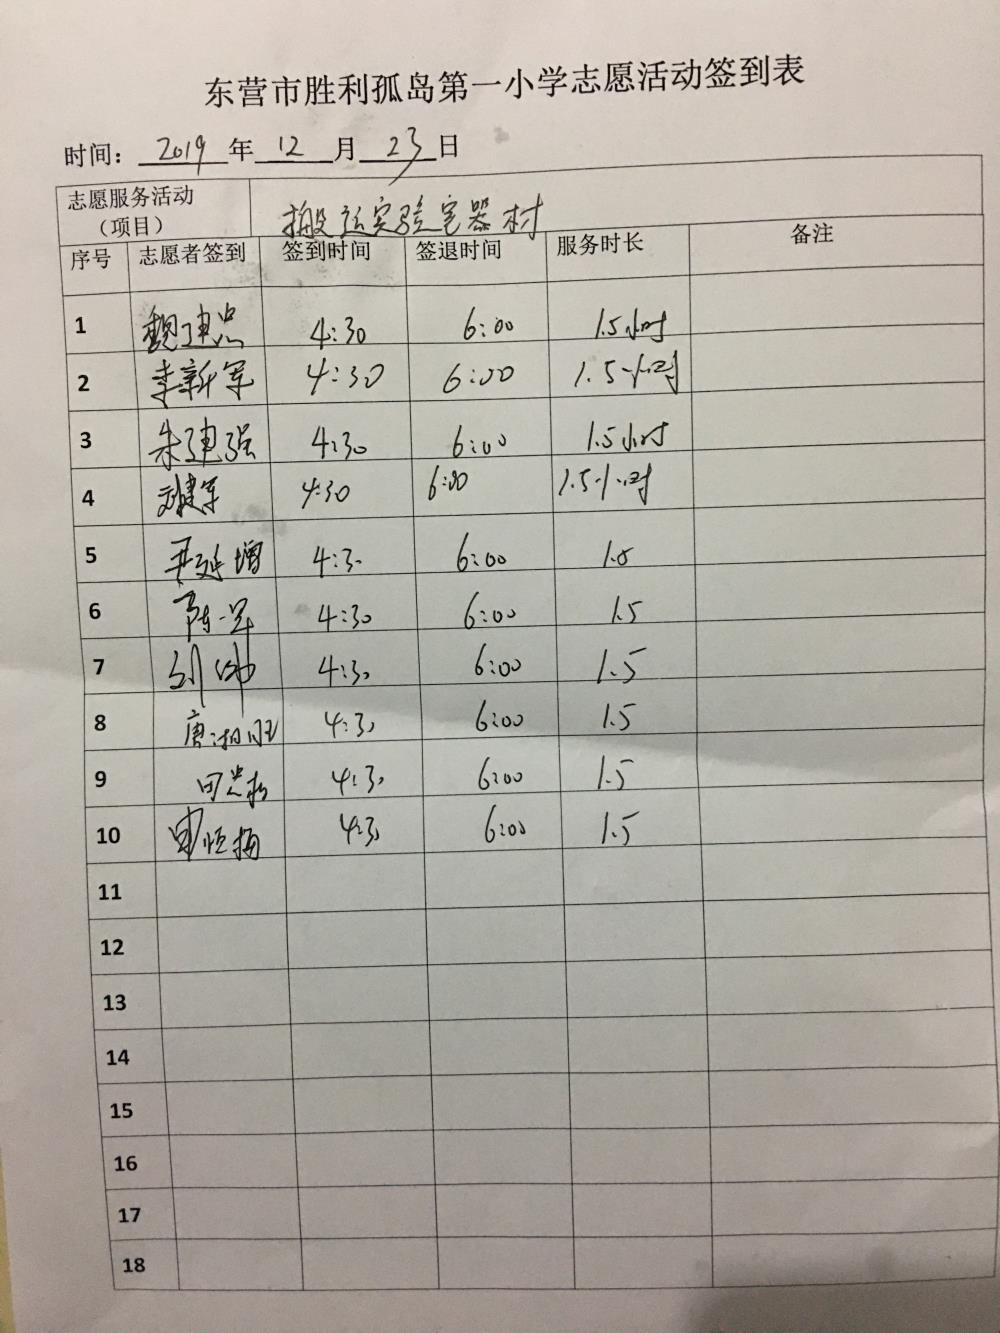 东营市胜利孤岛第一小学志愿活动签到表
时间：2019年12月23日
志愿服务活动（项目） 搬运实验室器材
序号 志愿者签到 签到时间 签退时间 服务时长 备注
1 魏建忠 4:30 6:00 1.5小时
2 李新军 4:30 6:00 1.5小时
3 朱建强 4:30 6:00 1.5小时
4 刘建军 4:30 6:00 1.5小时
5 尹延增 4:30 6:00 1.5
6 陈军 4:30 6:00 1.5
7 刘帅 4:30 6:00 1.5
8 唐 4:30 6:00 1.5
9 田 4:30 6:00 1.5
10 恒梅 4:30 6:00 1.5
11
12
13
14
15
16
17
18